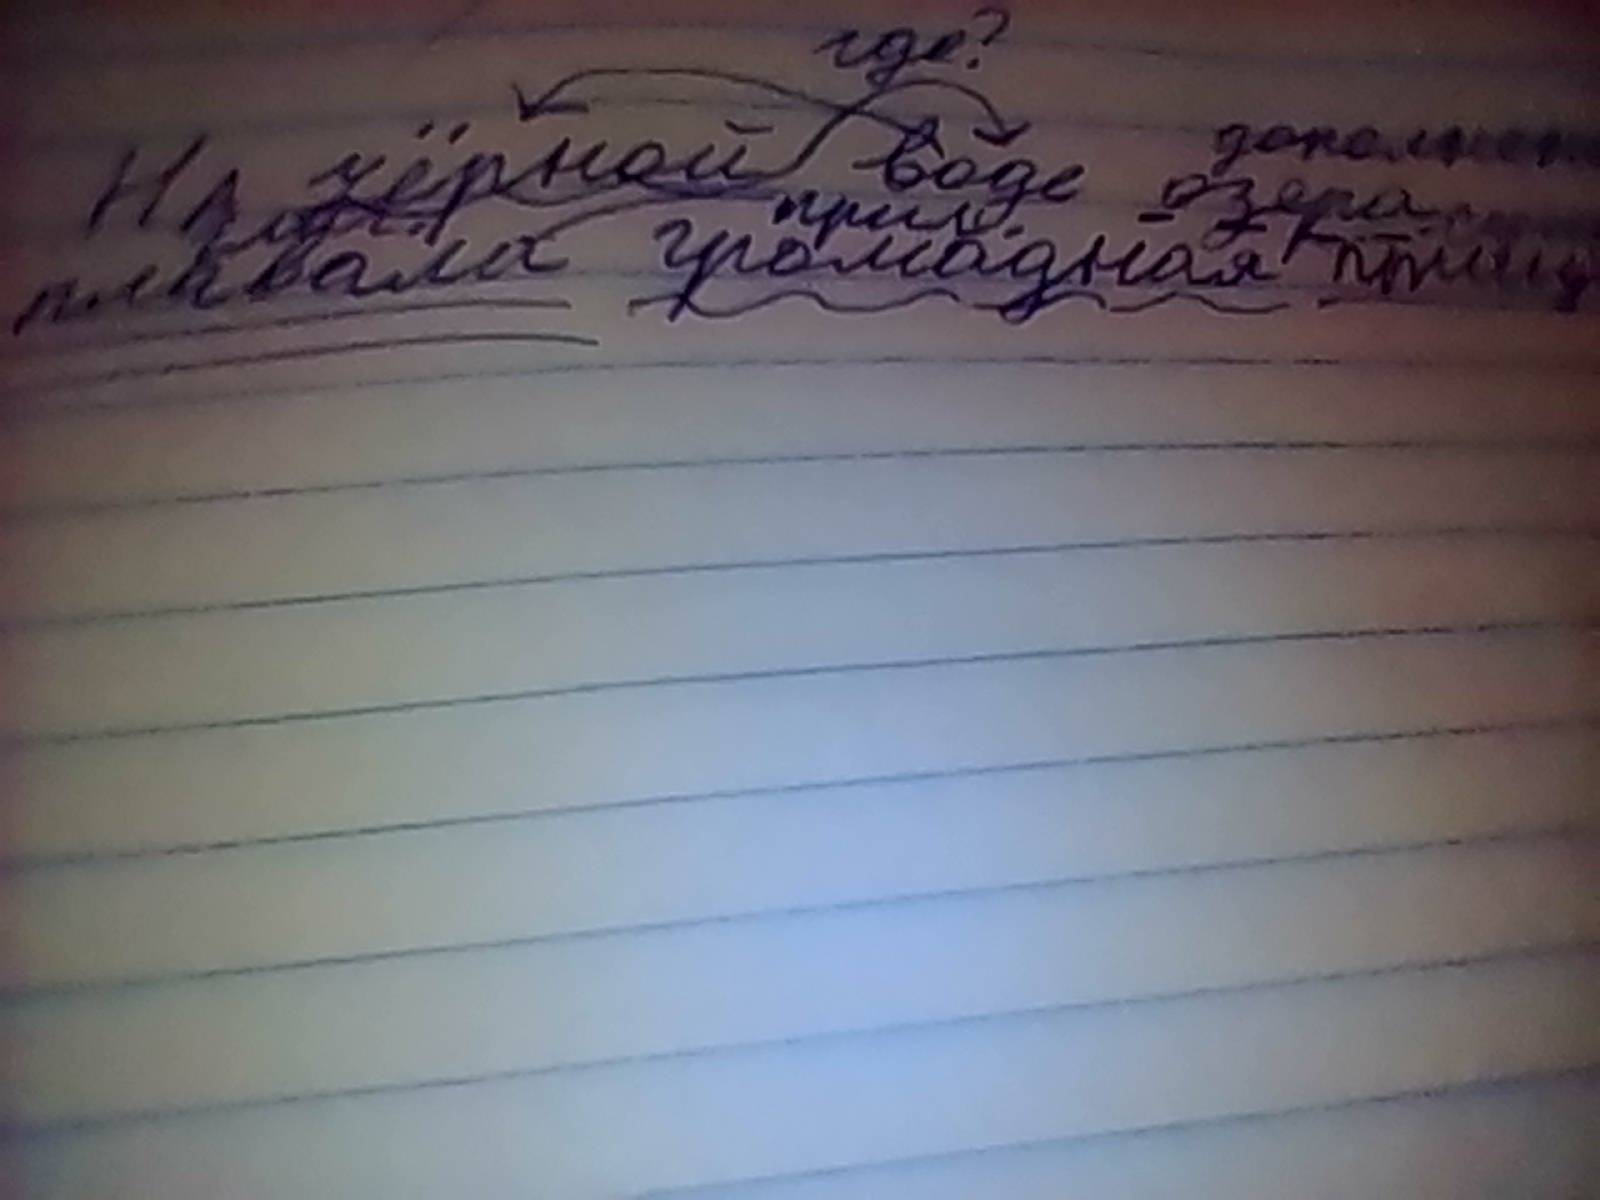 где?
На чёрной воде озера
прил.
плавала громадная птица